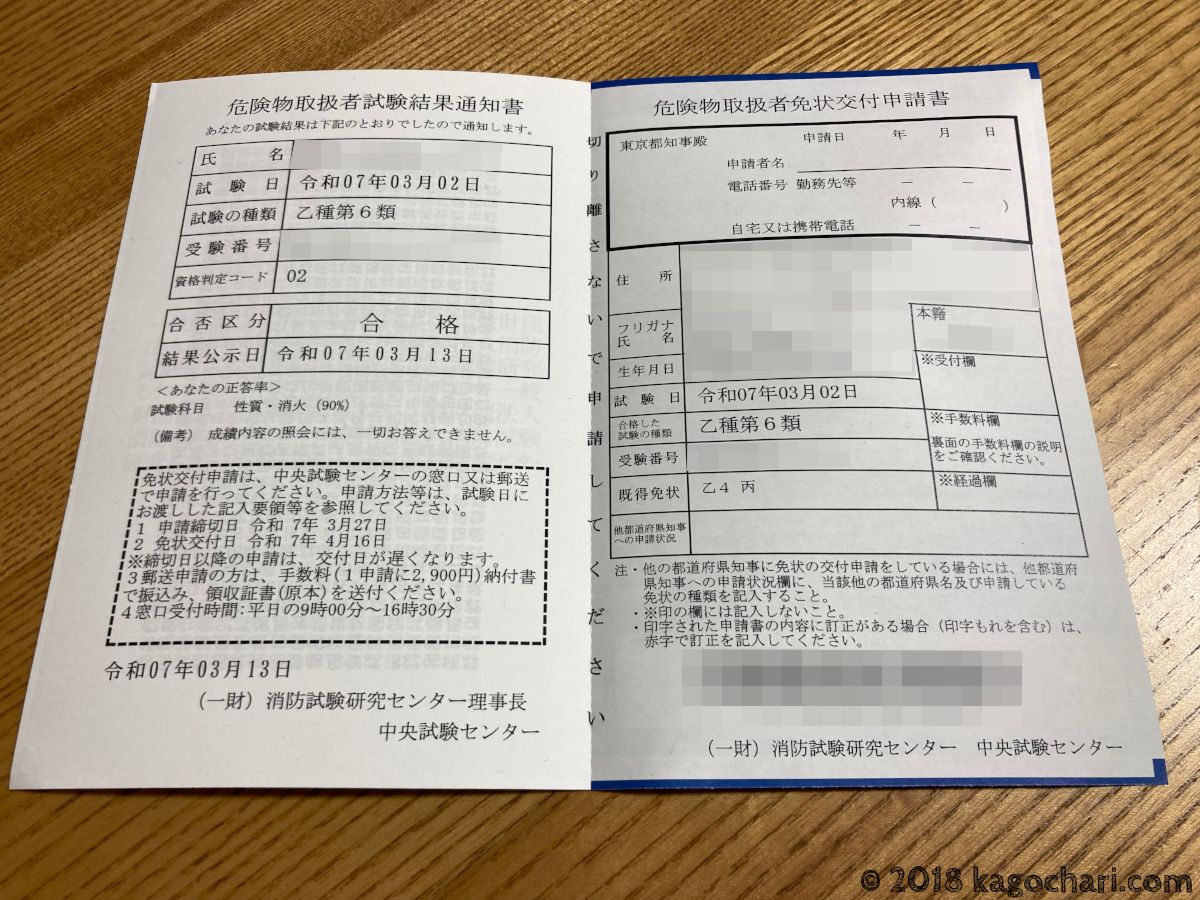 危険物取扱者試験結果通知書
あなたの試験結果は下記のとおりでしたので通知します。
氏 名
試 験 日 令和07年03月02日
試験の種類 乙種第６類
受験番号
資格判定コード 02
合否区分 合 格
結果公示日 令和07年03月13日
＜あなたの正答率＞
試験科目 性質・消火（90%）
（備考） 成績内容の照会には、一切お答えできません。
免状交付申請は、中央試験センターの窓口又は郵送
で申請を行ってください。申請方法等は、試験日に
お渡しした記入要領等を参照してください。
1 申請締切日 令和 7年 3月27日
2 免状交付日 令和 7年 4月16日
※締切日以降の申請は、交付日が遅くなります。
3郵送申請の方は、手数料(１申請に2,900円)納付書
で振込み、領収証書(原本)を送付ください。
4窓口受付時間:平日の9時00分～16時30分
令和07年03月13日
（一財）消防試験研究センター理事長
中央試験センター
切り離さないで申請してください
危険物取扱者免状交付申請書
東京都知事殿 申請日 年 月 日
申請者名
電話番号 勤務先等 － －
内線（ ）
自宅又は携帯電話 － －
住 所
フリガナ
氏 名
本籍
生年月日
※受付欄
試 験 日 令和07年03月02日
合格した
試験の種類 乙種第６類
※手数料欄
裏面の手数料欄の説明
をご確認ください。
受験番号
既得免状 乙４ 丙
※経過欄
他都道府県知事
への申請状況
注・他の都道府県知事に免状の交付申請をしている場合には、他都道府
県知事への申請状況欄に、当該他の都道府県名及び申請している
免状の種類を記入すること。
・※印の欄には記入しないこと。
・印字された申請書の内容に訂正がある場合（印字もれを含む）は、
赤字で訂正を記入してください。
（一財）消防試験研究センター 中央試験センター
© 2018 kagochari.com